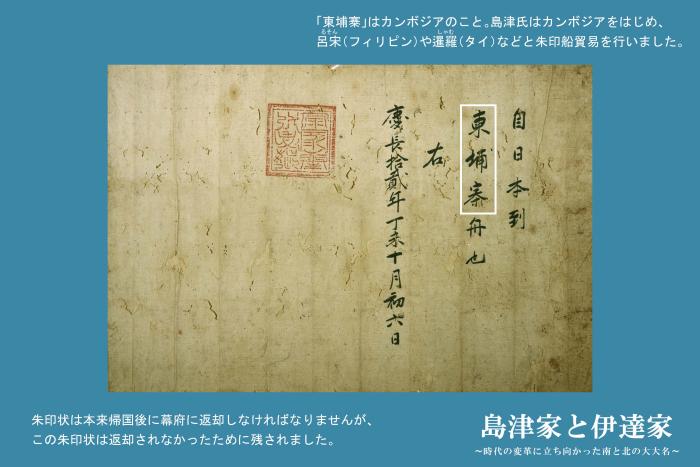 「東埔寨」はカンボジアのこと。島津氏はカンボジアをはじめ、
呂宋(フィリピン)や暹羅(タイ)などと朱印船貿易を行いました。
るそん
しゃむ
自日本到
東埔寨舟也
右
慶長拾貳年丁未十月初六日
朱印状は本来帰国後に幕府に返却しなければなりませんが、
この朱印状は返却されなかったために残されました。
島津家と伊達家
~時代の変革に立ち向かった南と北の大大名~